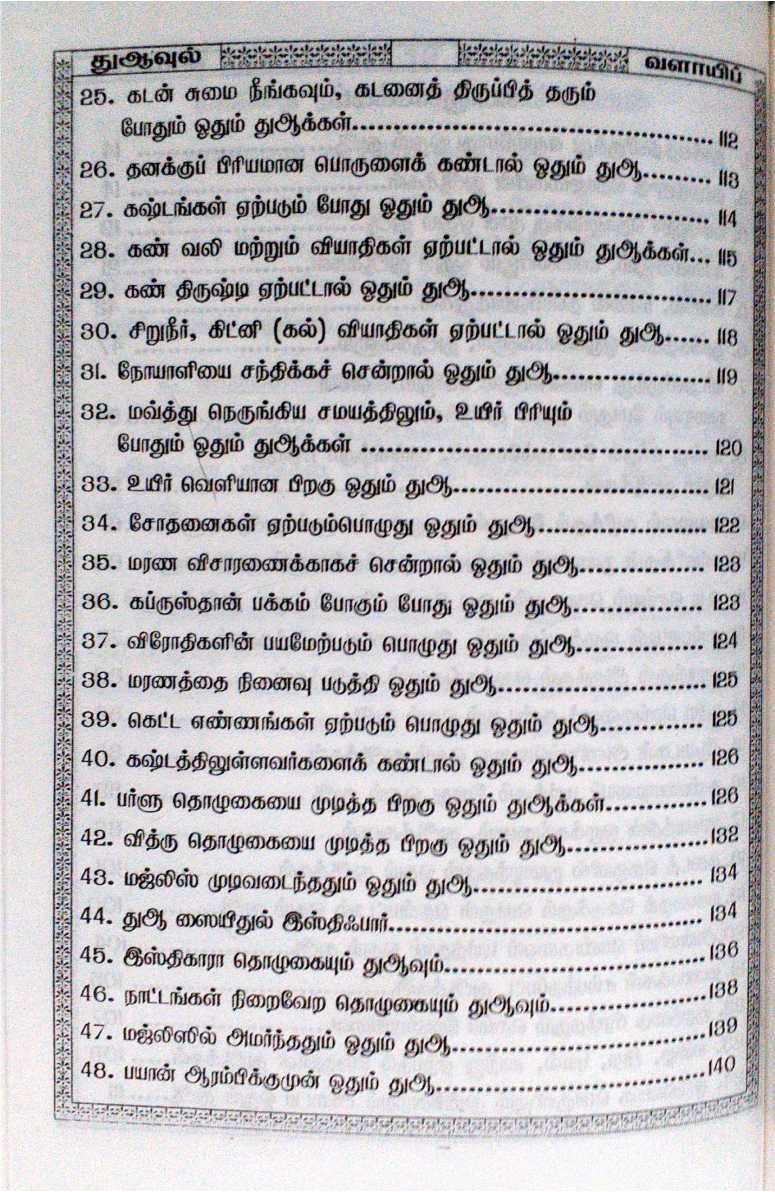 துஆவுல்
வளாயிப்
25. கடன் சுமை நீங்கவும், கடனைத் திருப்பித் தரும்
போதும் ஓதும் துஆக்கள்.......................................................... 112
26. தனக்குப் பிரியமான பொருளைக் கண்டால் ஓதும் துஆ......... 113
27. கஷ்டங்கள் ஏற்படும் போது ஓதும் துஆ................................ 114
28. கண் வலி மற்றும் வியாதிகள் ஏற்பட்டால் ஓதும் துஆக்கள்... 115
29. கண் திருஷ்டி ஏற்பட்டால் ஓதும் துஆ................................... 117
30. சிறுநீர், கிட்னி (கல்) வியாதிகள் ஏற்பட்டால் ஓதும் துஆ...... 118
31. நோயாளியை சந்திக்கச் சென்றால் ஓதும் துஆ...................... 119
32. மவ்த்து நெருங்கிய சமயத்திலும், உயிர் பிரியும்
போதும் ஓதும் துஆக்கள் ...................................................... 120
33. உயிர் வெளியான பிறகு ஓதும் துஆ..................................... 121
34. சோதனைகள் ஏற்படும்பொழுது ஓதும் துஆ......................... 122
35. மரண விசாரணைக்காகச் சென்றால் ஓதும் துஆ................... 123
36. கப்ருஸ்தான் பக்கம் போகும் போது ஓதும் துஆ.................... 123
37. விரோதிகளின் பயமேற்படும் பொழுது ஓதும் துஆ................... 124
38. மரணத்தை நினைவு படுத்தி ஓதும் துஆ............................... 125
39. கெட்ட எண்ணங்கள் ஏற்படும் பொழுது ஓதும் துஆ................ 125
40. கஷ்டத்திலுள்ளவர்களைக் கண்டால் ஓதும் துஆ................... 126
41. பர்ளு தொழுகையை முடித்த பிறகு ஓதும் துஆக்கள்............... 126
42. வித்ரு தொழுகையை முடித்த பிறகு ஓதும் துஆ..................... 132
43. மஜ்லிஸ் முடிவடைந்ததும் ஓதும் துஆ................................... 134
44. துஆ ஸையிதுல் இஸ்திஃபார்............................................... 134
45. இஸ்திகாரா தொழுகையும் துஆவும்....................................... 136
46. நாட்டங்கள் நிறைவேற தொழுகையும் துஆவும்....................... 138
47. மஜ்லிஸில் அமர்ந்ததும் ஓதும் துஆ...................................... 139
48. பயான் ஆரம்பிக்குமுன் ஓதும் துஆ........................................ 140